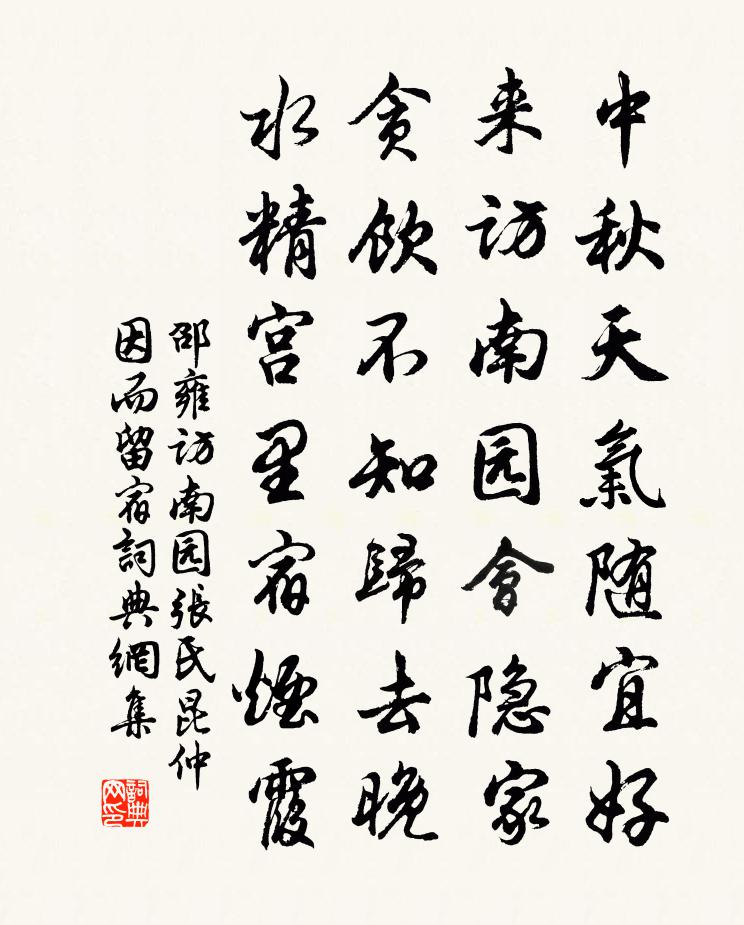 中秋天氣随宜好
来访南园會隐家
貪飲不知歸去晚
水精宫里宿煙霞
邵雍访南园張氏昆仲
因而留宿詞典網集
詞典网印